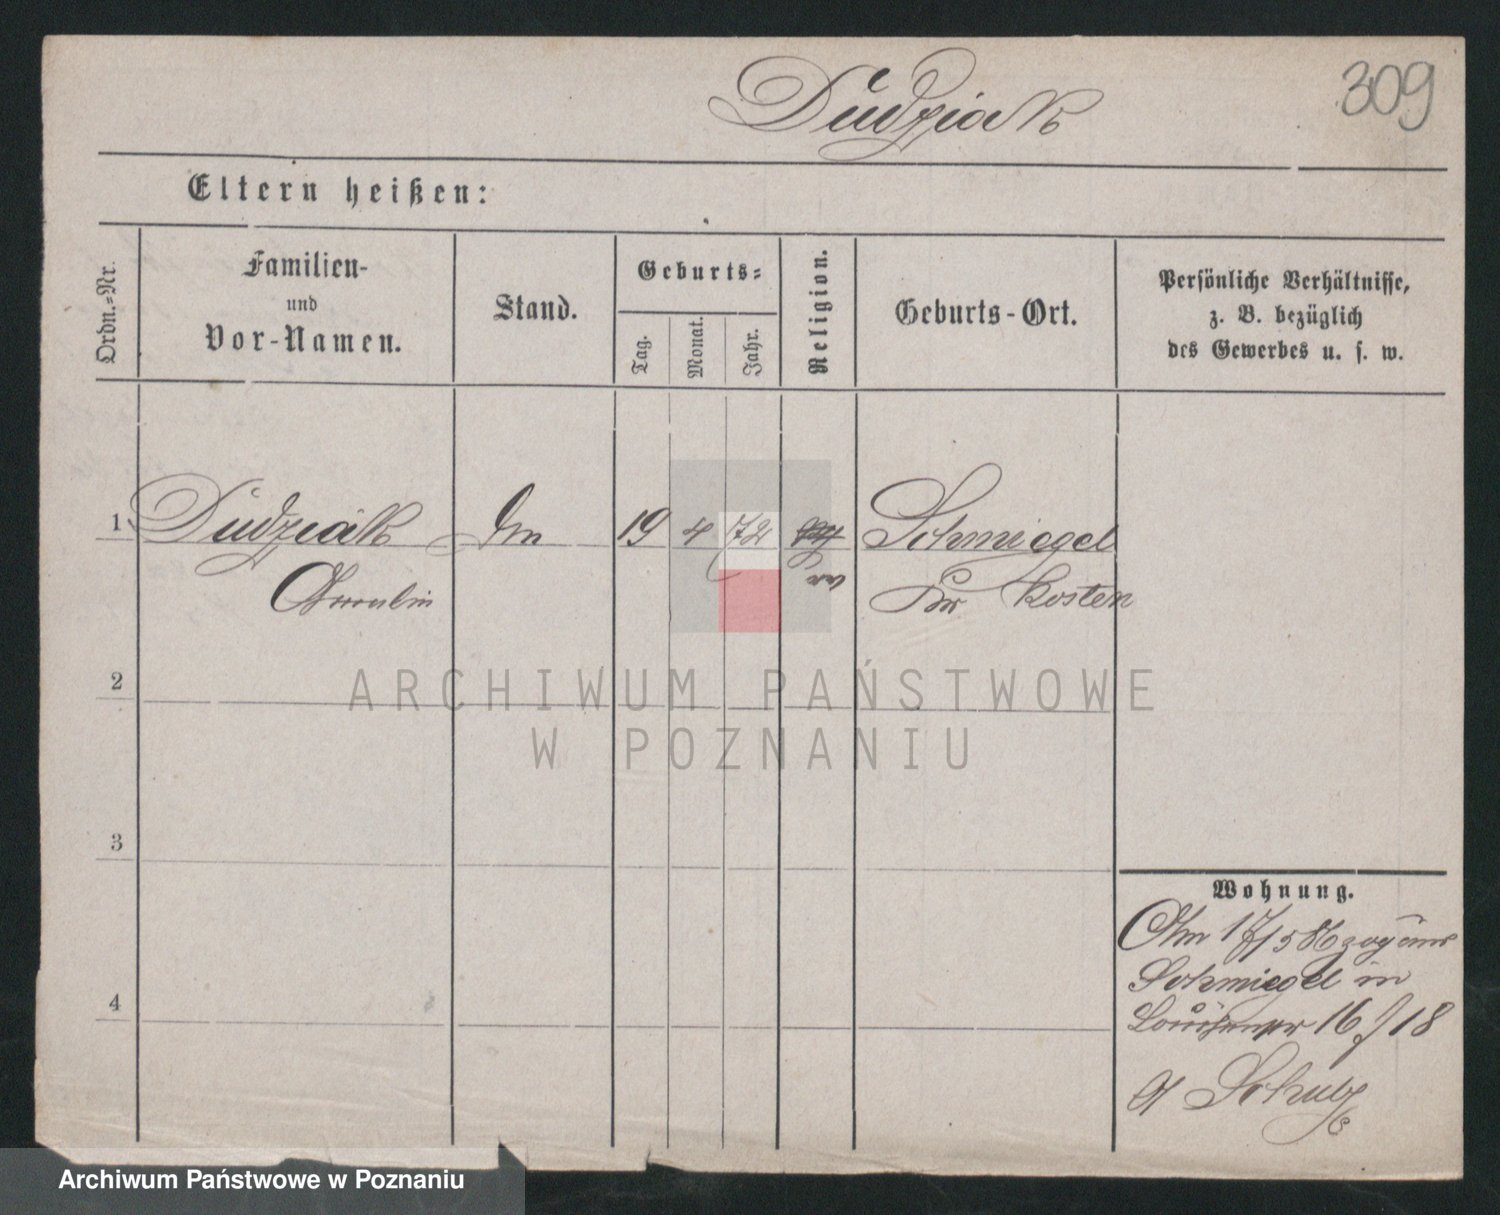 309
Dudziak
Eltern heißen:
Ordn.-Nr.
Familien-
und
Vor-Namen.
Stand.
Geburts-
Tag.
Monat.
Jahr.
Religion.
Geburts-Ort.
Persönliche Verhältnisse,
z. B. bezüglich
des Gewerbes u. s. w.
1 Dudziak 19 4 72 Schmiegel
Kosten
2
3
4
Wohnung.
Am 17/5 86 zog aus
Schmiegel in
16 18
Schulz
ARCHIWUM PAŃSTWOWE
W POZNANIU
Archiwum Państwowe w Poznaniu